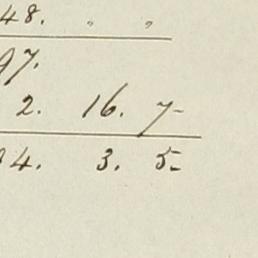 48. " "
97.
2. 16. 7-
94. 3. 5-